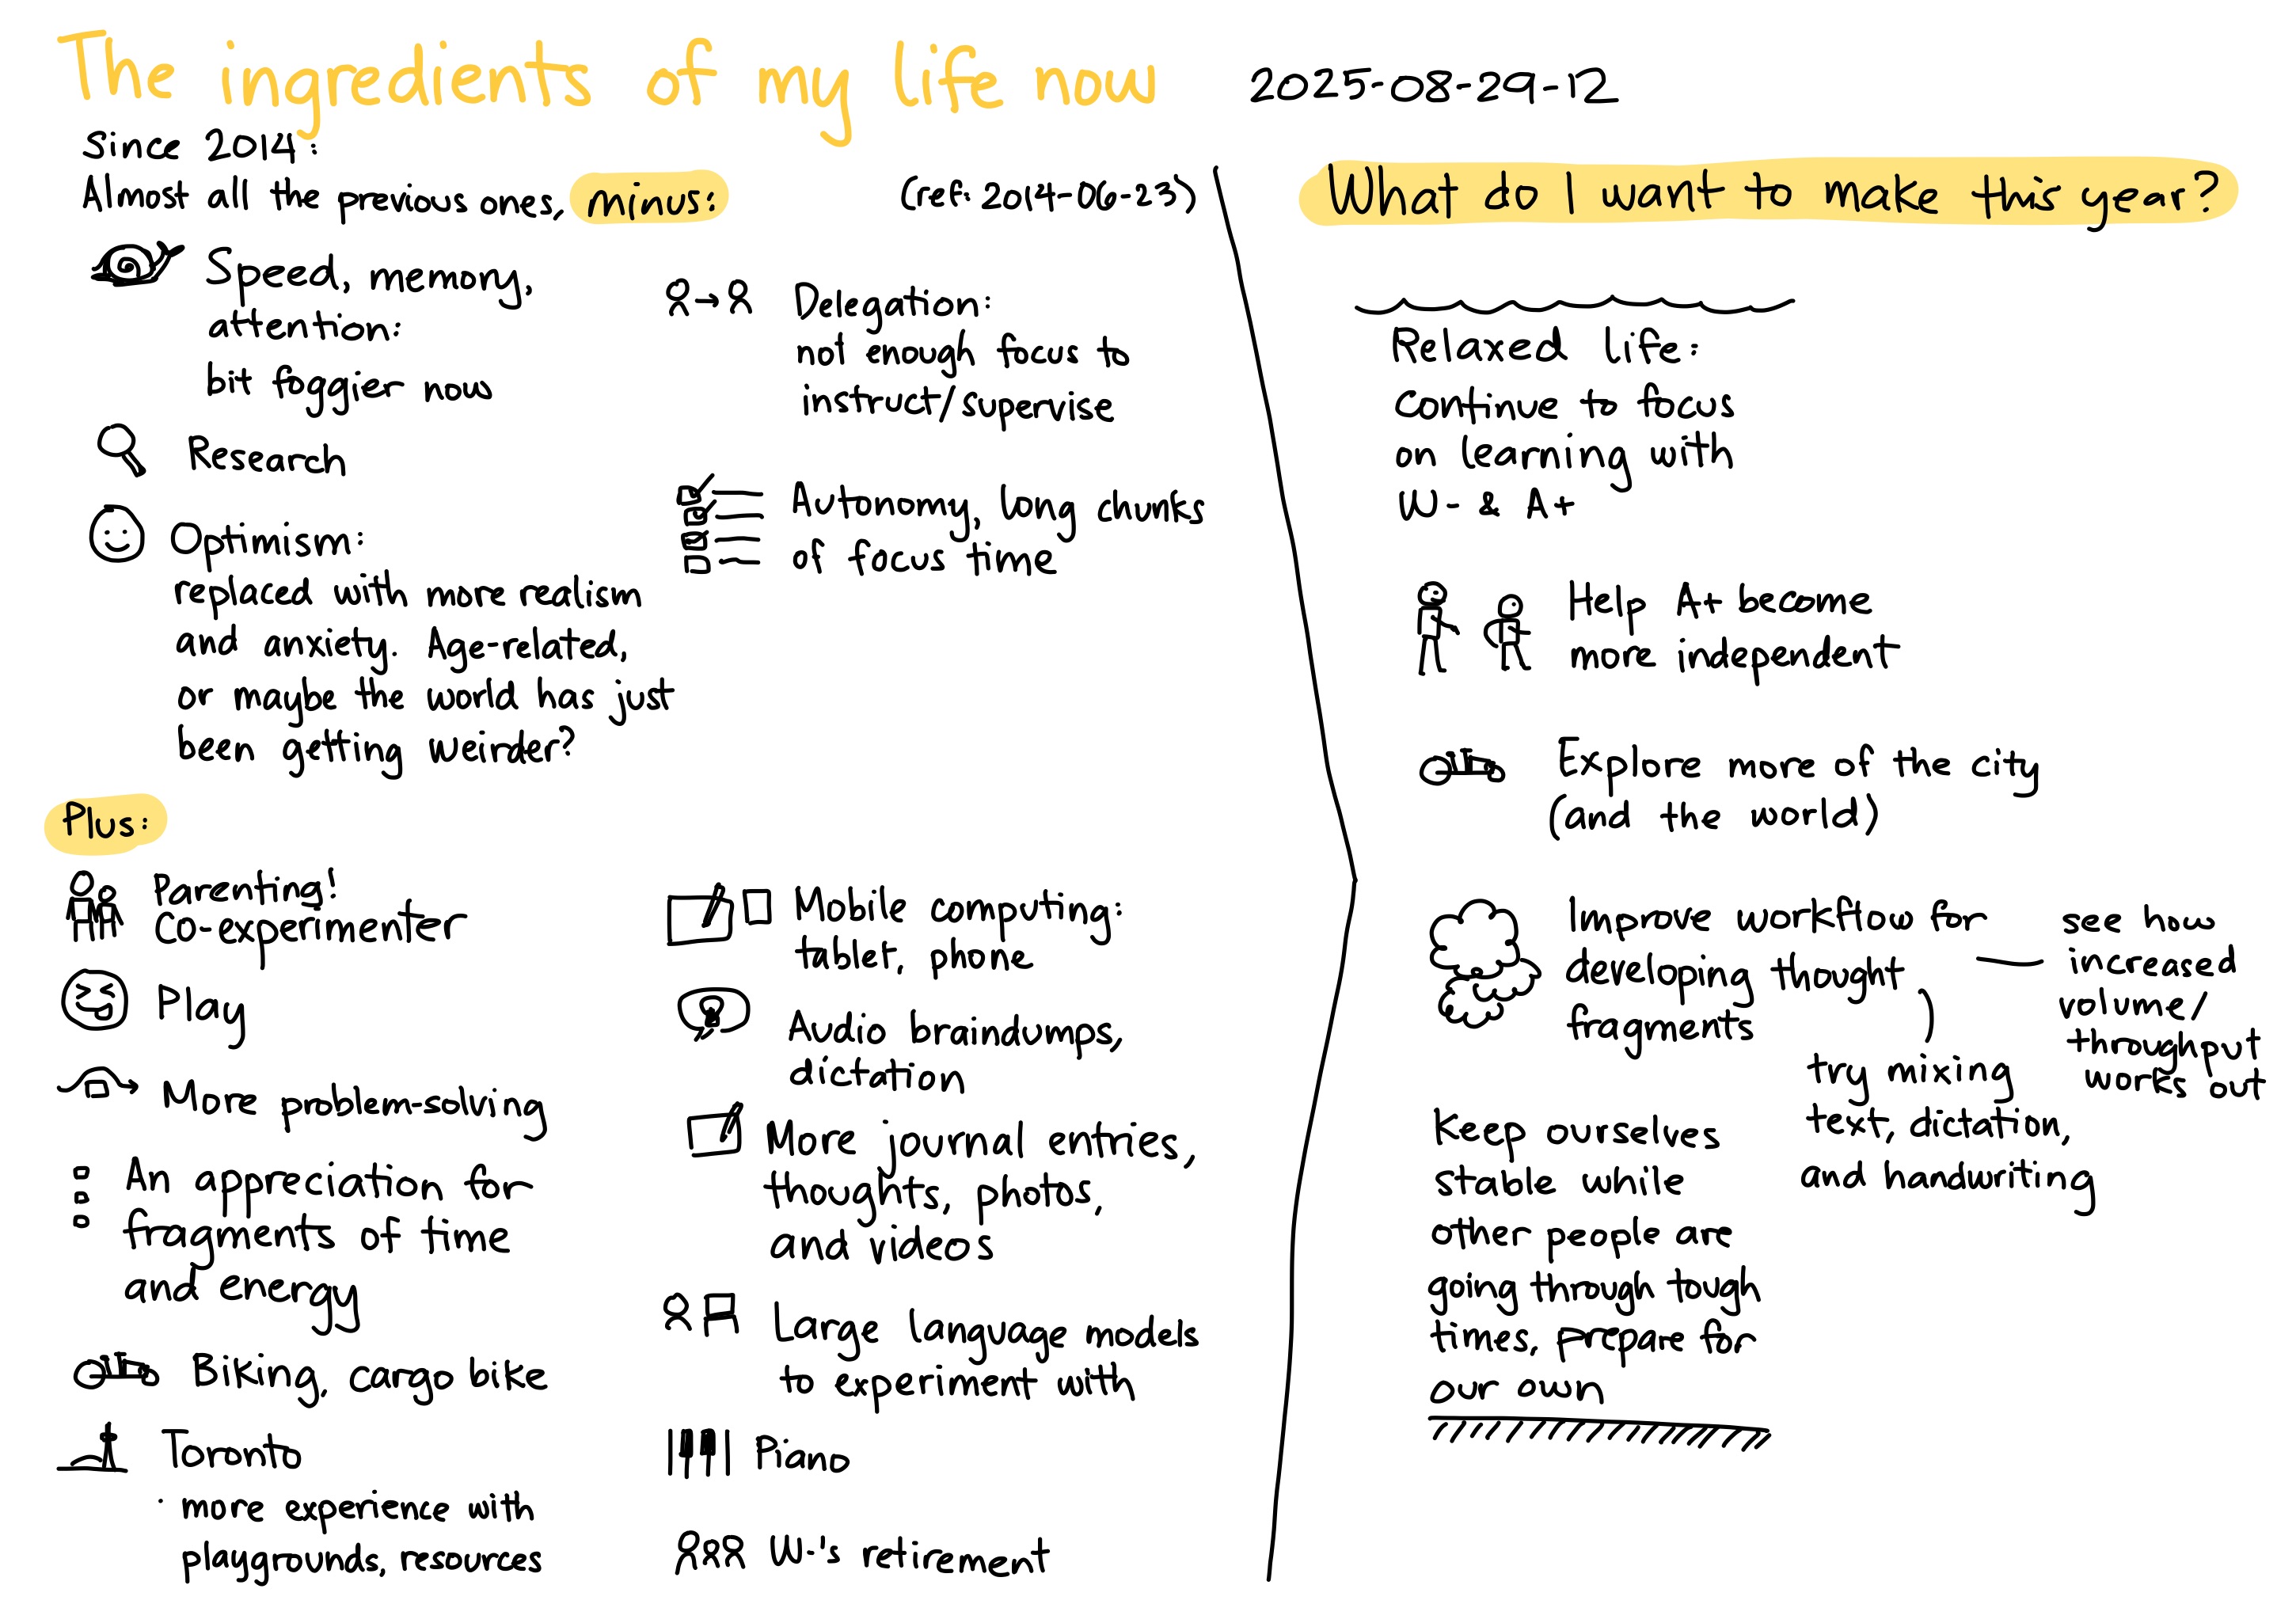 The ingredients of my life now
2025-08-29-12
Since 2014:
Almost all the previous ones, minus:
(ref: 2014-06-23)
Speed, memory,
attention:
bit foggier now
Research
Optimism:
replaced with more realism
and anxiety. Age-related,
or maybe the world has just
been getting weirder?
Delegation:
not enough focus to
instruct/supervise
Autonomy, long chunks
of focus time
Plus:
Parenting!
Co-experimenter
Play
More problem-solving
An appreciation for
fragments of time
and energy
Biking, cargo bike
Toronto
· more experience with
playgrounds, resources
Mobile computing:
tablet, phone
Audio braindumps,
dictation
More journal entries,
thoughts, photos,
and videos
Large language models
to experiment with
Piano
W-'s retirement
What do I want to make this year?
Relaxed life:
continue to focus
on learning with
W- & A+
Help A+ become
more independent
Explore more of the city
(and the world)
Improve workflow for
developing thought
fragments
see how
increased
volume/
throughput
works out
try mixing
text, dictation,
and handwriting
Keep ourselves
stable while
other people are
going through tough
times, prepare for
our own